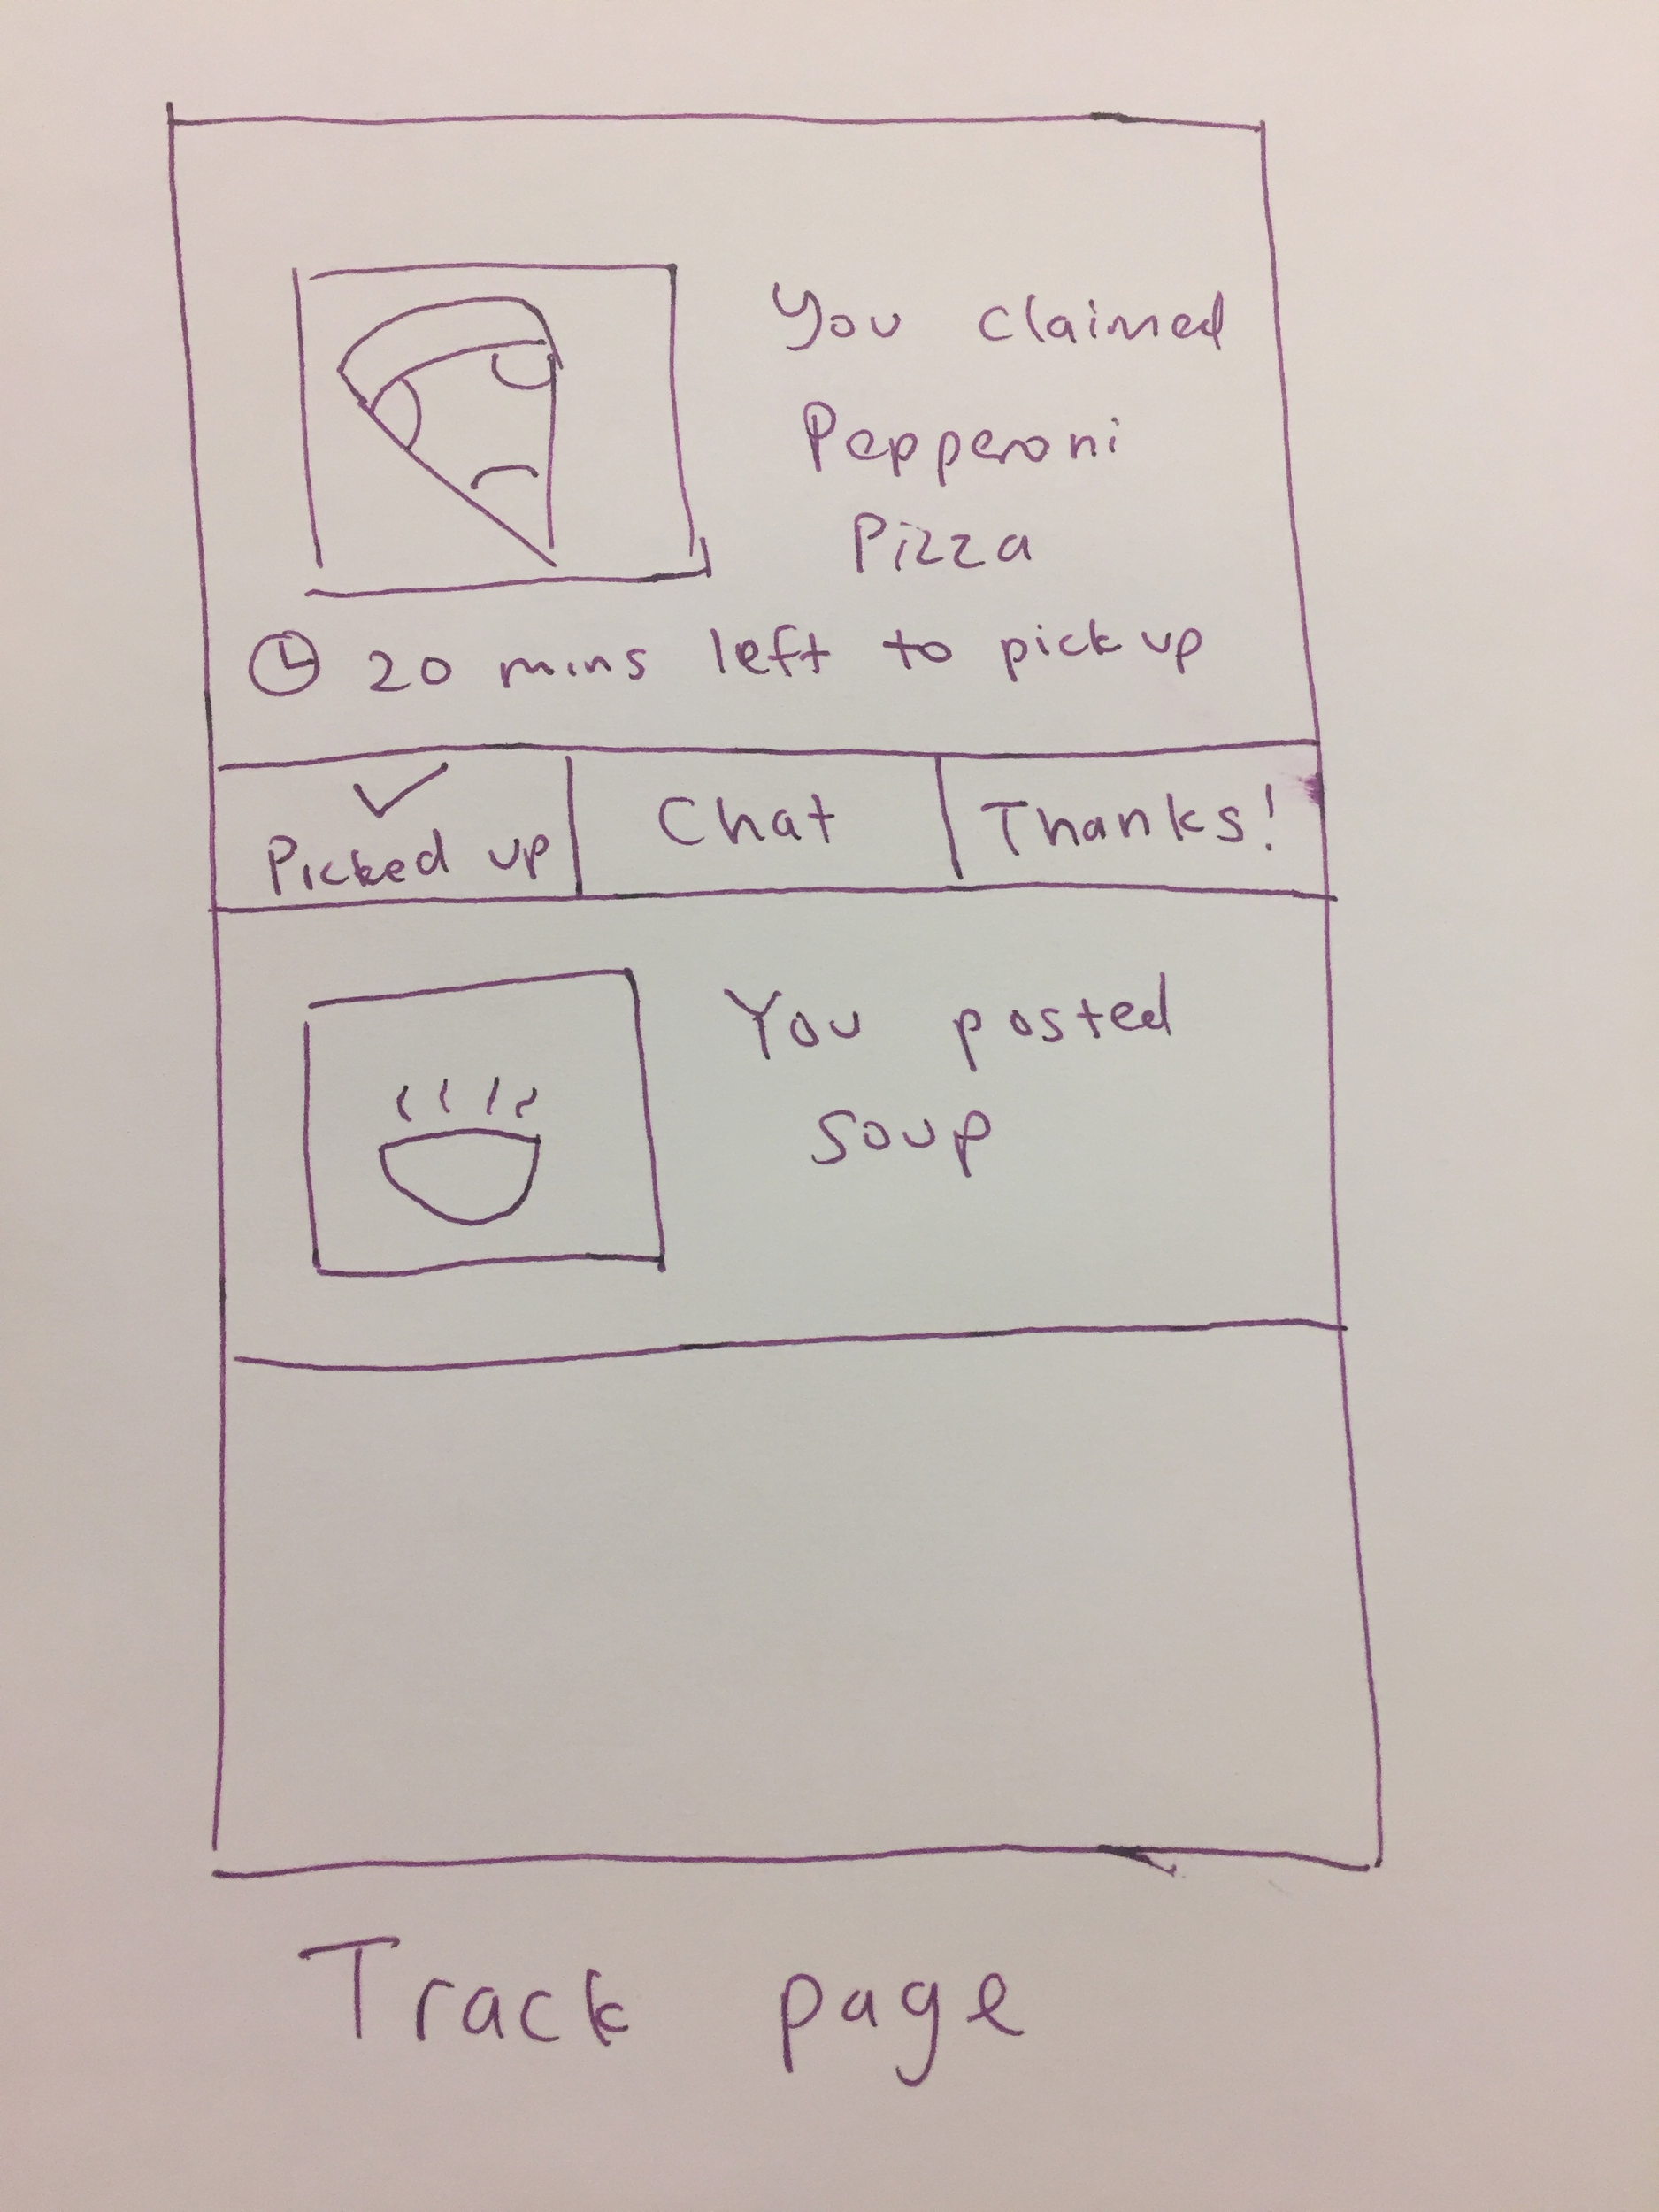 You claimed
Pepperoni
Pizza
20 mins left to pick up
Picked up
Chat
Thanks!
You posted
soup
Track page